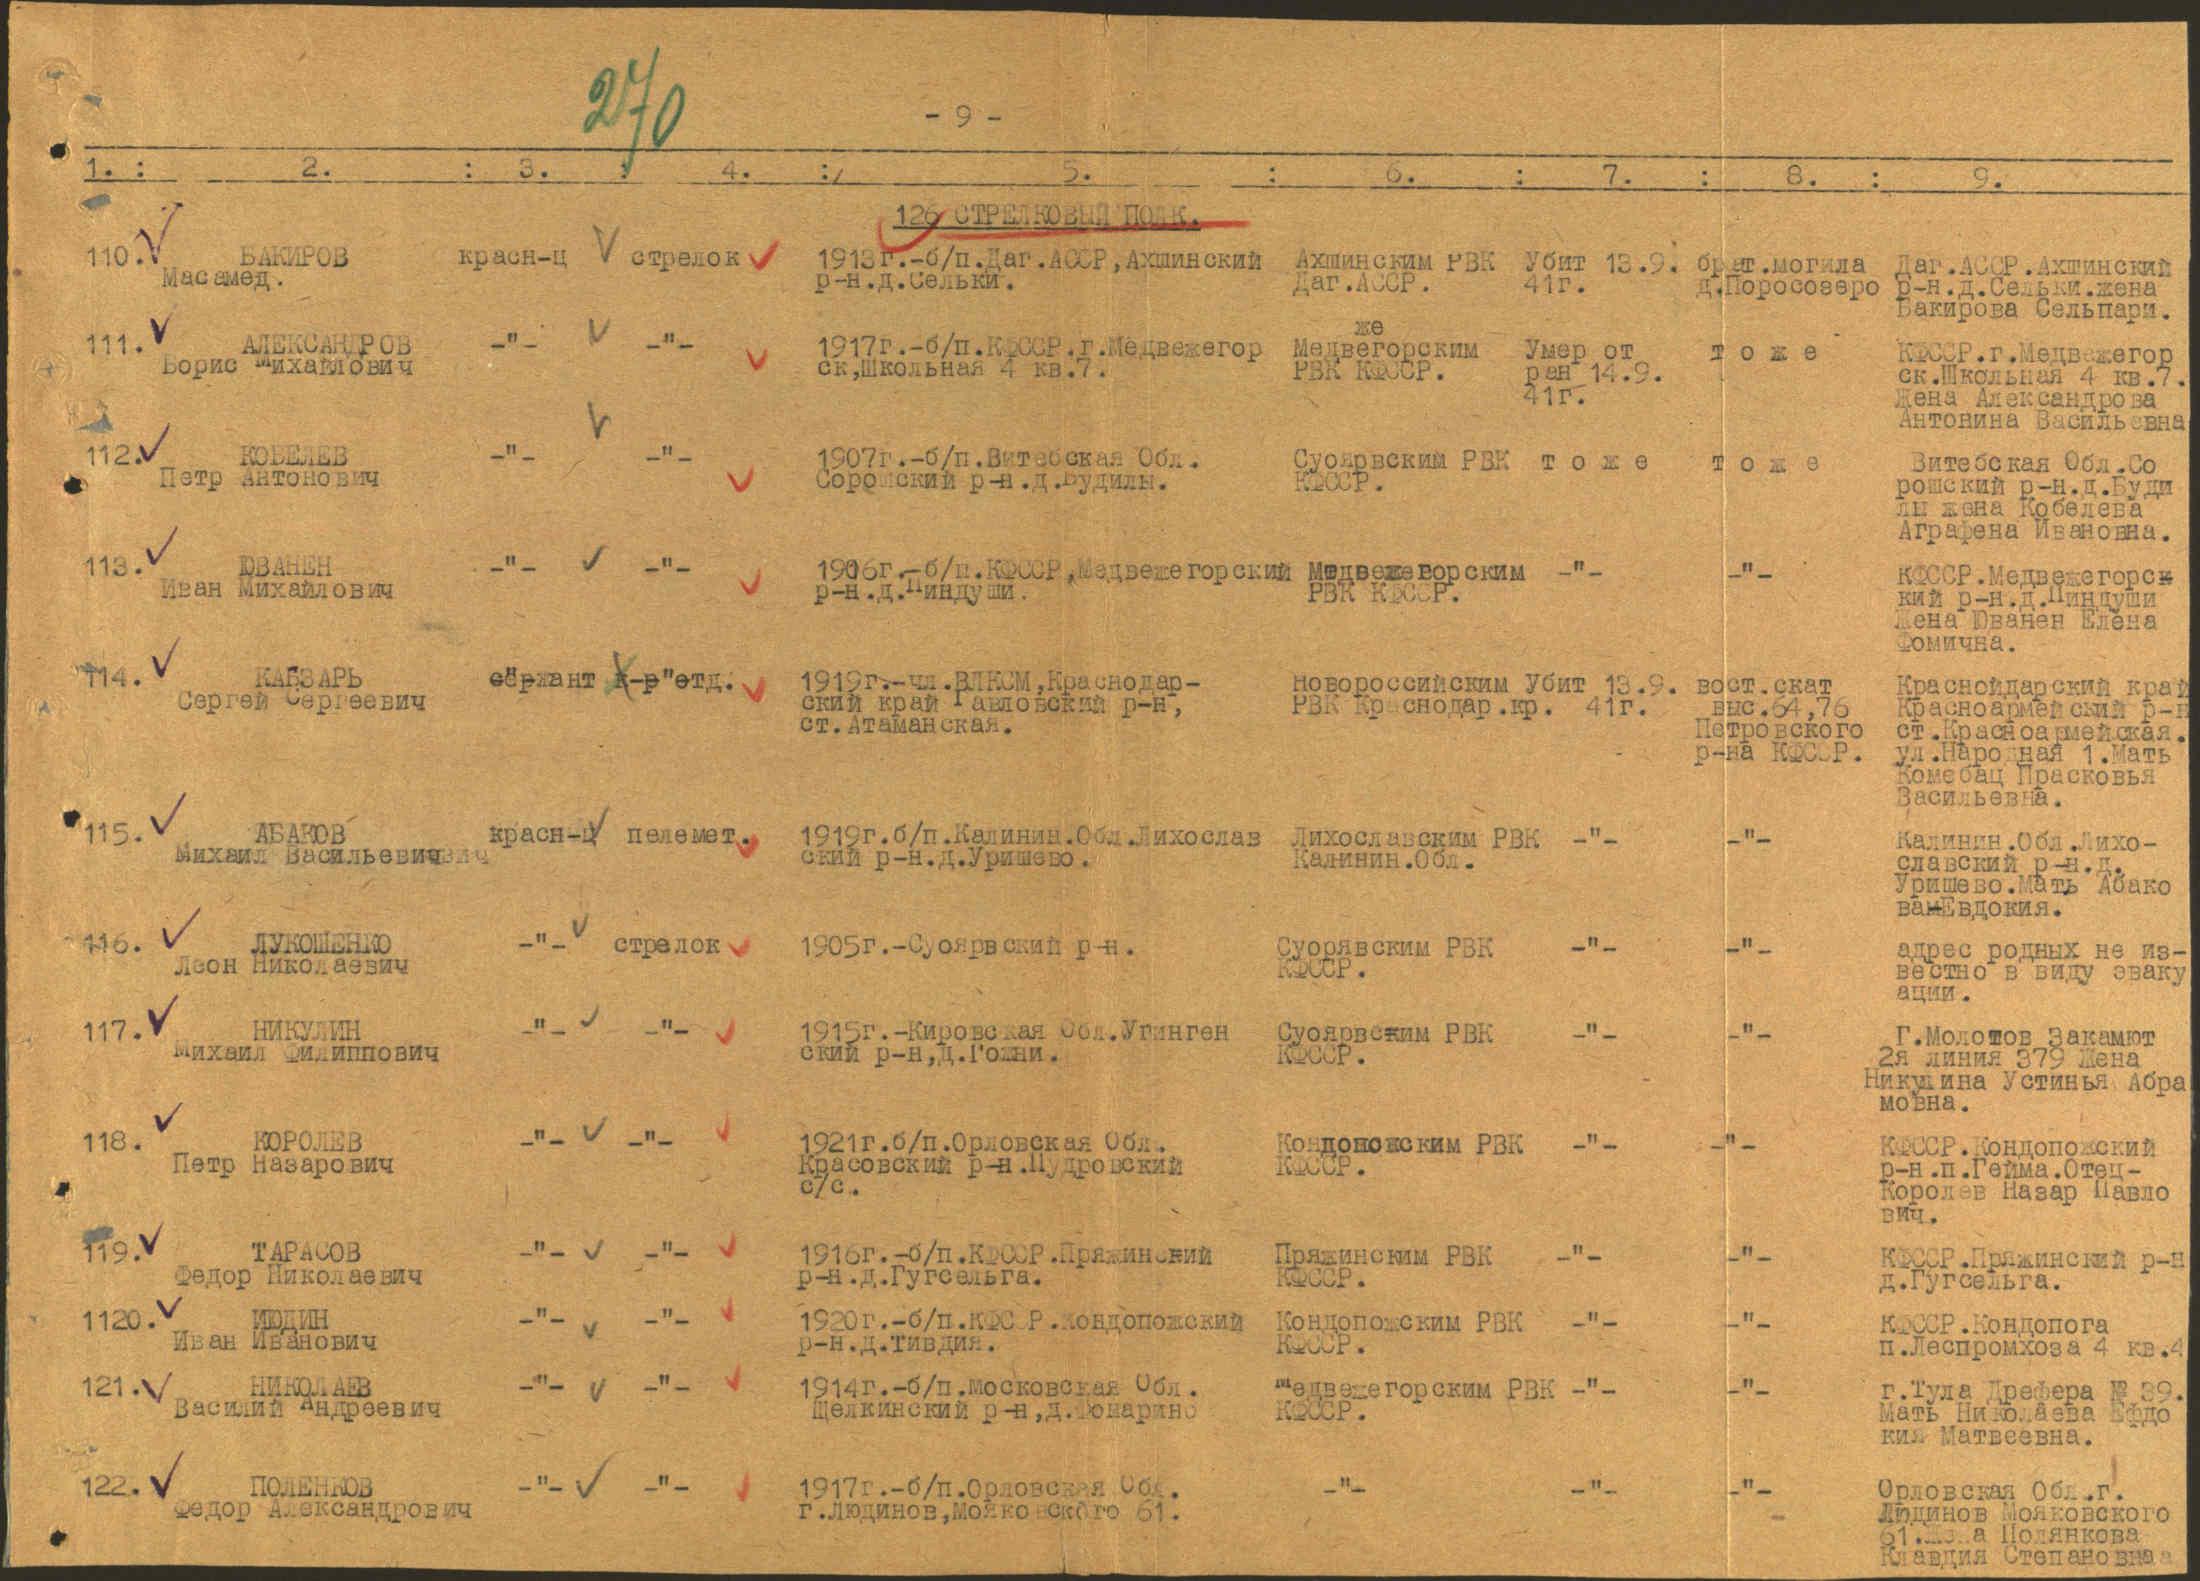 270
- 9 -
1. : 2. : 3. : 4. : 5. : 6. : 7. : 8. : 9.
126 СТРЕЛКОВЫЙ ПОЛК.
110. БАКИРОВ красн-ц стрелок 1913г.-б/п.Даг.АССР,Ахшинский Ахшинским РВК Убит 13.9. брат.могила Даг.АССР.Ахшинский
Масамед. р-н.д.Сельки. Даг.АССР. 41г. д.Поросозеро р-н.д.Сельки.жена
Бакирова Сельпари.
же
111. АЛЕКСАНДРОВ -"- -"- 1917г.-б/п.КФССР.г.Медвежегор Медвегорским Умер от т о ж е КФССР.г.Медвежегор
Борис Михайлович ск,Школьная 4 кв.7. РВК КФССР. ран 14.9. ск.Школьная 4 кв.7.
41г. Жена Александрова
Антонина Васильевна
112. КОБЕЛЕВ -"- -"- 1907г.-б/п.Витебская Обл. Суоярвским РВК т о ж е т о ж е Витебская Обл.Со
Петр Антонович Сорошский р-н.д.Будилы. КФССР. рошский р-н.д.Буди
лы жена Кобелева
Аграфена Ивановна.
113. ЮВАНЕН -"- -"- 1906г.-б/п.КФССР,Медвежегорский Медвежегорским -"- -"- КФССР.Медвежегорск
Иван Михайлович р-н.д.Пиндуши. РВК КФССР. кий р-н.д.Пиндуши
Жена Юванен Елена
Фомична.
114. КАБЗАРЬ сержант к-р отд. 1919г.-чл.ВЛКСМ,Краснодар- Новороссийским Убит 13.9. вост.скат Краснойдарский край
Сергей Сергеевич ский край Павловский р-н, РВК Краснодар.кр. 41г. выс.64,76 Красноармейский р-н
ст.Атаманская. Петровского ст.Красноармейская.
р-на КФССР. ул.Народная 1.Мать
Комебац Прасковья
Васильевна.
115. АБАКОВ красн-ц пелемет. 1919г.б/п.Калинин.Обл.Лихослав Лихославским РВК -"- -"- Калинин.Обл.Лихо-
Михаил Васильевич ский р-н.д.Уришево. Калинин.Обл. славский р-н.д.
Уришево.Мать Абако
ва Евдокия.
116. ЛУКОШЕНКО -"- стрелок 1905г.-Суоярвский р-н. Суорявским РВК -"- -"- адрес родных не из-
Леон Николаевич КФССР. вестно в виду эваку
ации.
117. НИКУЛИН -"- -"- 1915г.-Кировская Обл.Угинген Суоярвским РВК -"- -"- Г.Молотов Закамют
Михаил Филиппович ский р-н,д.Гожни. КФССР. 2я линия 379 Жена
Никулина Устинья Абра
мовна.
118. КОРОЛЕВ -"- -"- 1921г.б/п.Орловская Обл. Кондопожским РВК -"- -"- КФССР.Кондопожский
Петр Назарович Красовский р-н.Пудровский КФССР. р-н.п.Гейма.Отец-
с/с. Королев Назар Павло
вич.
119. ТАРАСОВ -"- -"- 1916г.-б/п.КФССР.Пряжинский Пряжинским РВК -"- -"- КФССР.Пряжинский р-н
Федор Николаевич р-н.д.Гугсельга. КФССР. д.Гугсельга.
1120. ИЮДИН -"- -"- 1920г.-б/п.КФССР.Кондопожский Кондопожским РВК -"- -"- КФССР.Кондопога
Иван Иванович р-н.д.Тивдия. КФССР. п.Леспромхоза 4 кв.4
121. НИКОЛАЕВ -"- -"- 1914г.-б/п.Московская Обл. Медвежегорским РВК -"- -"- г.Тула Дрефера № 39.
Василий Андреевич Щелкинский р-н,д. КФССР. Мать Николаева Ефдо
кия Матвеевна.
122. ПОЛЕНКОВ -"- -"- 1917г.-б/п.Орловская Обл. -"- -"- -"- Орловская Обл.г.
Федор Александрович г.Людинов,Мояковского 61. Людинов Мояковского
61.Жена Полянкова
Клавдия Степановна